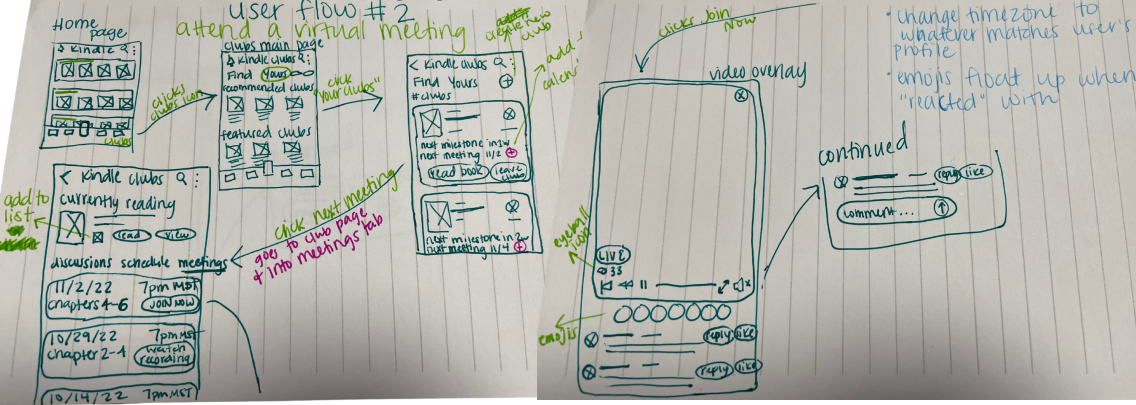 user flow #2
attend a virtual meeting
Home
page
Kindle
clubs
clicks
clubs icon
clubs main page
Kindle clubs
Find Yours
recommended clubs
featured clubs
click
"your clubs"
Kindle clubs
Find Yours
#clubs
next milestone in 1w
next meeting 11/2
read book
leave
club
next milestone in 2w
next meeting 11/4
new
club
add
click next meeting
goes to club page
+ into meetings tab
< Kindle clubs
currently reading
add to
list
read view
discussions schedule meetings
11/2/22 7pm MST
chapters 4-6 JOIN NOW
10/29/22 7pm MST
chapter 2-4 watch
recording
10/14/22 7pm MST
clicks Join
Now
video overlay
eyeball
icon
LIVE
33
emojis
reply like
reply like
continued
reply like
comment...
• change timezone to
whatever matches user's
profile
• emojis float up when
"reacted" with